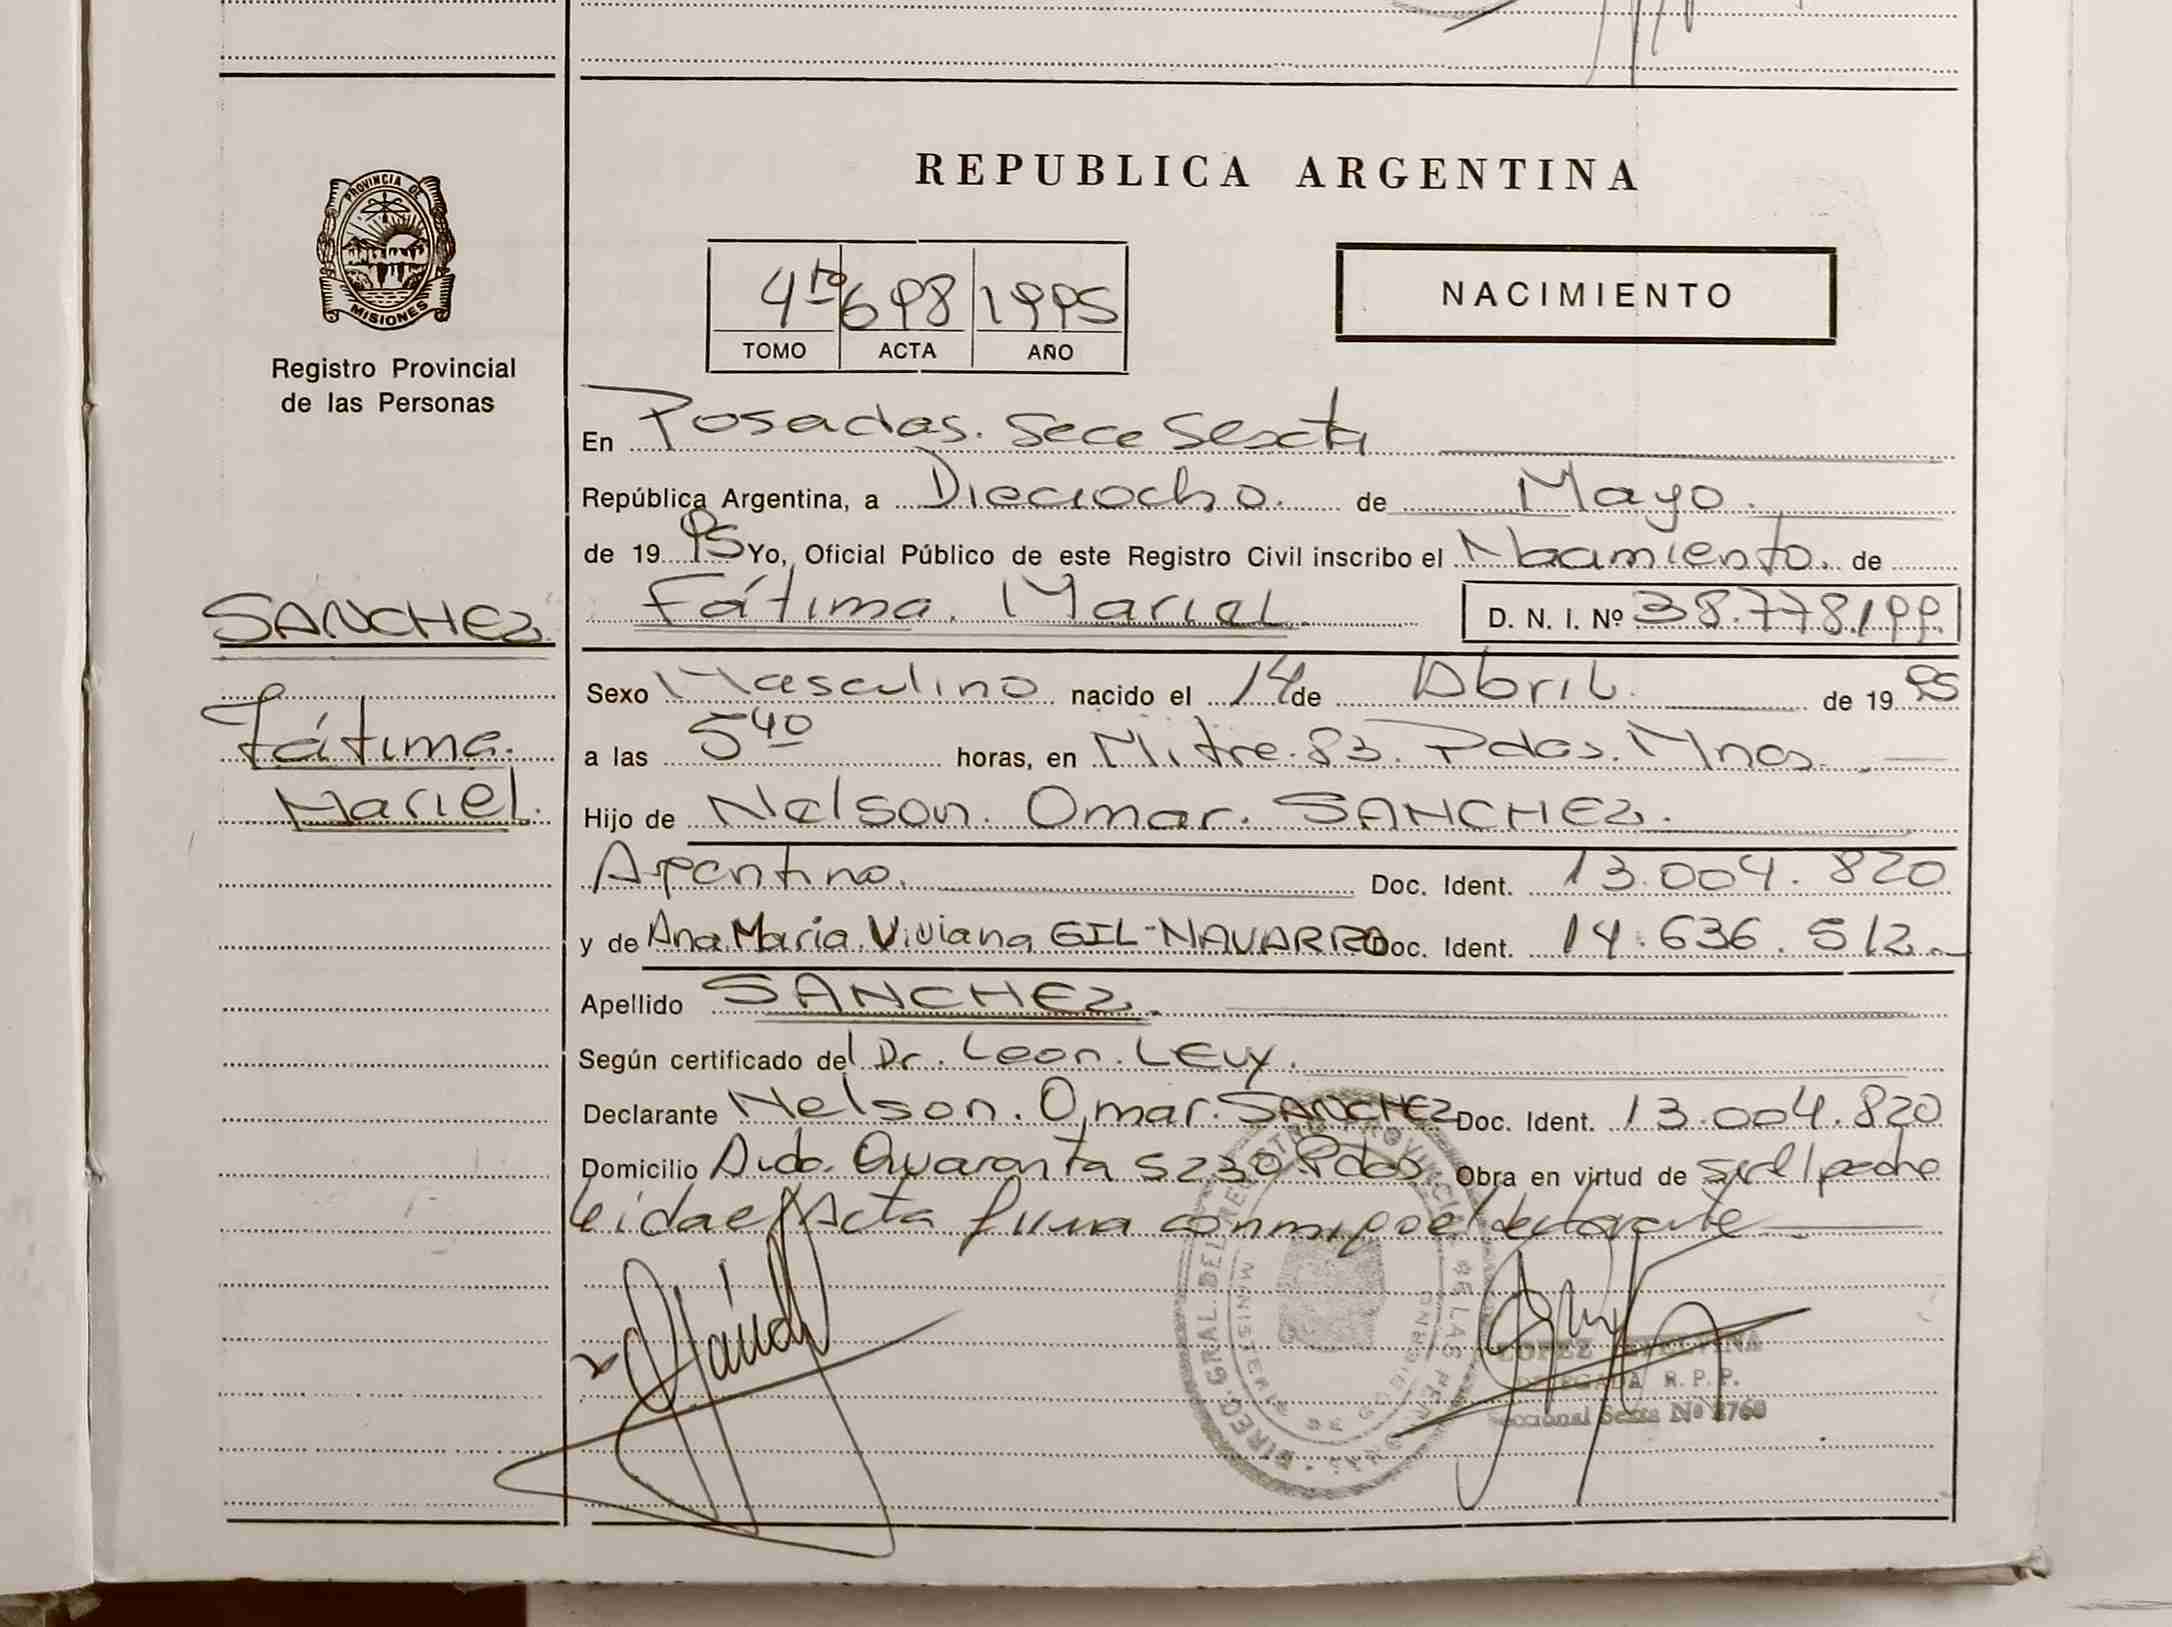 REPUBLICA ARGENTINA
PROVINCIA DE
MISIONES
Registro Provincial
de las Personas
4to 698 1995
TOMO ACTA AÑO
NACIMIENTO
En Posadas. Secc Sexta
República Argentina, a Dieciocho. de Mayo.
de 1995 Yo, Oficial Público de este Registro Civil inscribo el Nacimiento. de
Fátima. Mariel. D. N. I. Nº 38.778.199.
SANCHEZ
Fátima.
Mariel.
Sexo Masculino nacido el 14 de Abril. de 1995
a las 5 40 horas, en Mitre.83. Pdas. Mnes.
Hijo de Nelson. Omar. SANCHEZ.
Argentino. Doc. Ident. 13.004.820
y de Ana Maria Viviana GIL-NAVARRO Doc. Ident. 14.636.512
Apellido SANCHEZ.
Según certificado del Dr. Leon. LEVY.
Declarante Nelson. Omar. SANCHEZ Doc. Ident. 13.004.820
Domicilio Avda. Quaranta 5230 Pdas Obra en virtud de
leida el Acta firma conmigo el declarante
DIREC. GRAL. DEL REGISTRO PROVINCIAL DE LAS PERSONAS
MISIONES
LOPEZ
DELEGADA R. P. P.
Seccional Sexta Nº 3760